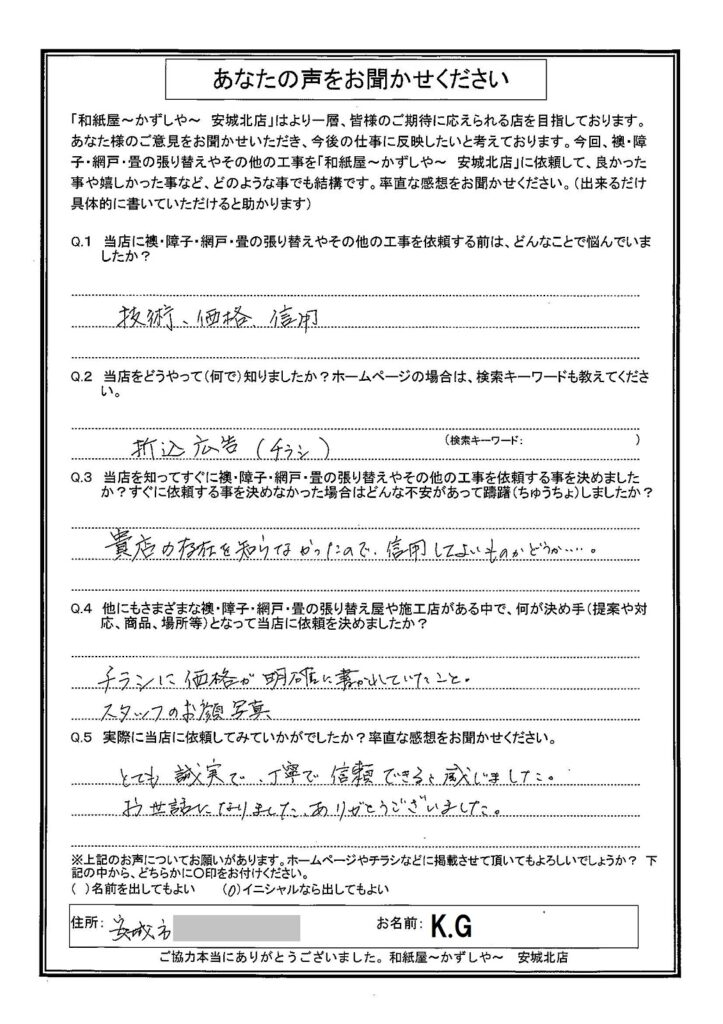 あなたの声をお聞かせください
「和紙屋～かずしや～ 安城北店」はより一層、皆様のご期待に応えられる店を目指しております。
あなた様のご意見をお聞かせいただき、今後の仕事に反映したいと考えております。今回、襖・障
子・網戸・畳の張り替えやその他の工事を「和紙屋～かずしや～ 安城北店」に依頼して、良かった
事や嬉しかった事など、どのような事でも結構です。率直な感想をお聞かせください。（出来るだけ
具体的に書いていただけると助かります）
Q.1 当店に襖・障子・網戸・畳の張り替えやその他の工事を依頼する前は、どんなことで悩んでいま
したか？
技術、価格、信用
Q.2 当店をどうやって（何で）知りましたか？ホームページの場合は、検索キーワードも教えてくださ
い。
折込広告（チラシ）
（検索キーワード： ）
Q.3 当店を知ってすぐに襖・障子・網戸・畳の張り替えやその他の工事を依頼する事を決めました
か？すぐに依頼する事を決めなかった場合はどんな不安があって躊躇（ちゅうちょ）しましたか？
貴店の存在を知らなかったので、信用してよいものかどうか……。
Q.4 他にもさまざまな襖・障子・網戸・畳の張り替え屋や施工店がある中で、何が決め手（提案や対
応、商品、場所等）となって当店に依頼を決めましたか？
チラシに価格が明確に書かれていたこと。
スタッフのお顔写真
Q.5 実際に当店に依頼してみていかがでしたか？率直な感想をお聞かせください。
とても誠実で、丁寧で信頼できると感じました。
お世話になりました、ありがとうございました。
※上記のお声についてお願いがあります。ホームページやチラシなどに掲載させて頂いてもよろしいでしょうか？ 下
記の中から、どちらかに〇印をお付けください。
（ ）名前を出してもよい （〇）イニシャルなら出してもよい
住所： 安城市 お名前： K.G
ご協力本当にありがとうございました。和紙屋～かずしや～ 安城北店